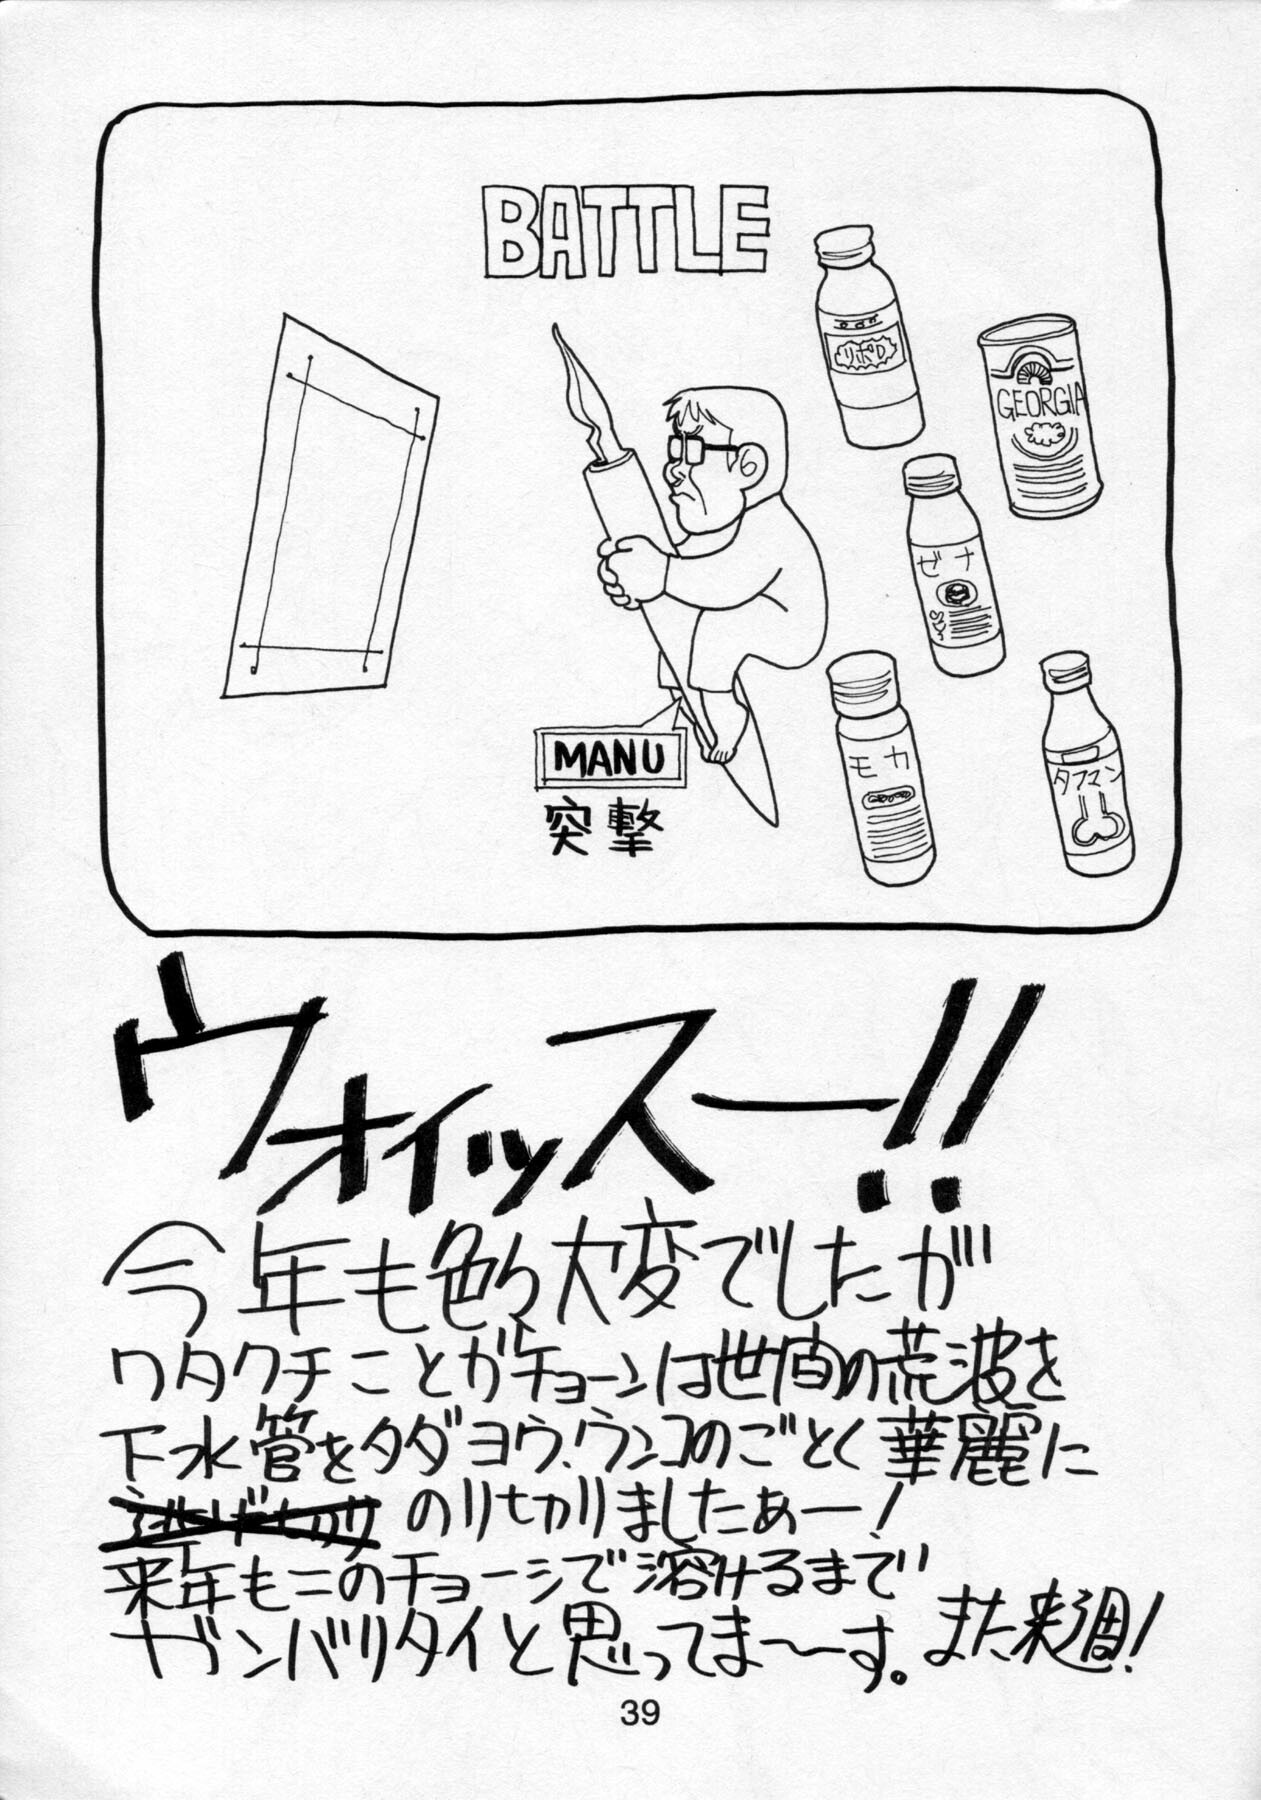 BATTLE
リポD
GEORGIA
ゼナ
モカ
タフマン
MANU
突撃
ウォイッスー!!
今年も色々大変でしたが
ワタクチことガチョーンは世間の荒波を
下水管をタダヨウ、ウンコのごとく華麗に
のりきりましたぁー!
来年もこのチョーシで溶けるまで
ガンバリタイと思ってま〜す。また来週!
39